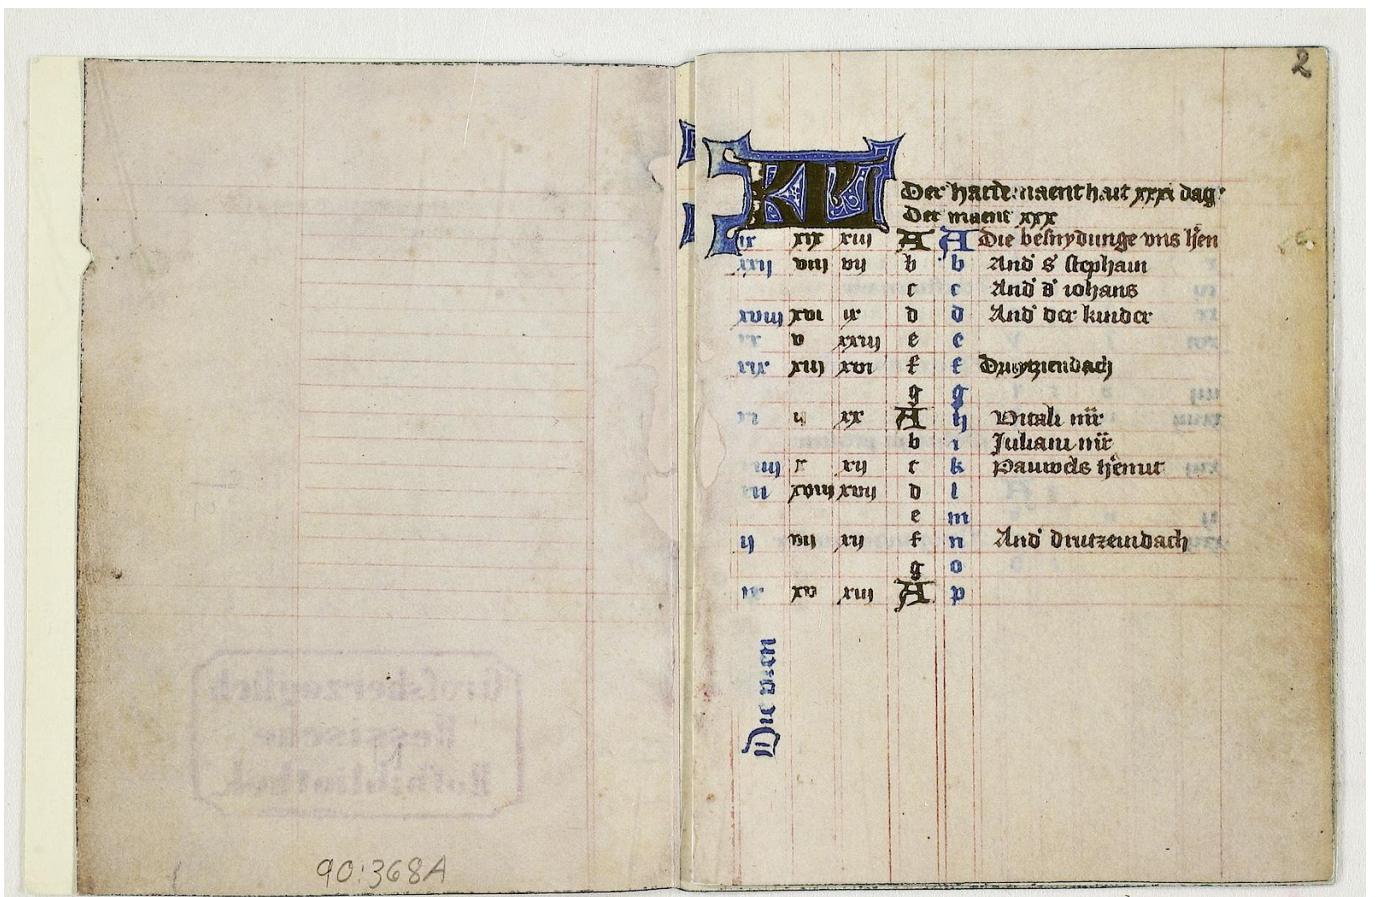 2
KL
Der harde maent hait xxxi dag
Der maent xxx
ix xix xiii A A Die besnydunge vns h'en
xvii viii vii b b And' S' stephain
c c And' S' iohans
xviii xvi ix d d And' der kinder
xx v xxiii e e
xix xiii xvi f f Druytziendach
g g
xi ii xx A h Vitali mr̄
b i Juliani mr̄
iiii x xii c k Pauwels h'emit
iii xviii xvii d l
e m
ii vii xii f n And' drutzeindach
g o
ix xv xiii A p
Die vren
Großherzoglich
Hessische
Hofbibliothek
90:368A